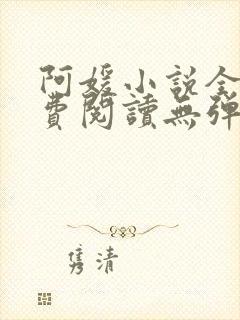 阿媛小說全
費閱讀無彈
隽清